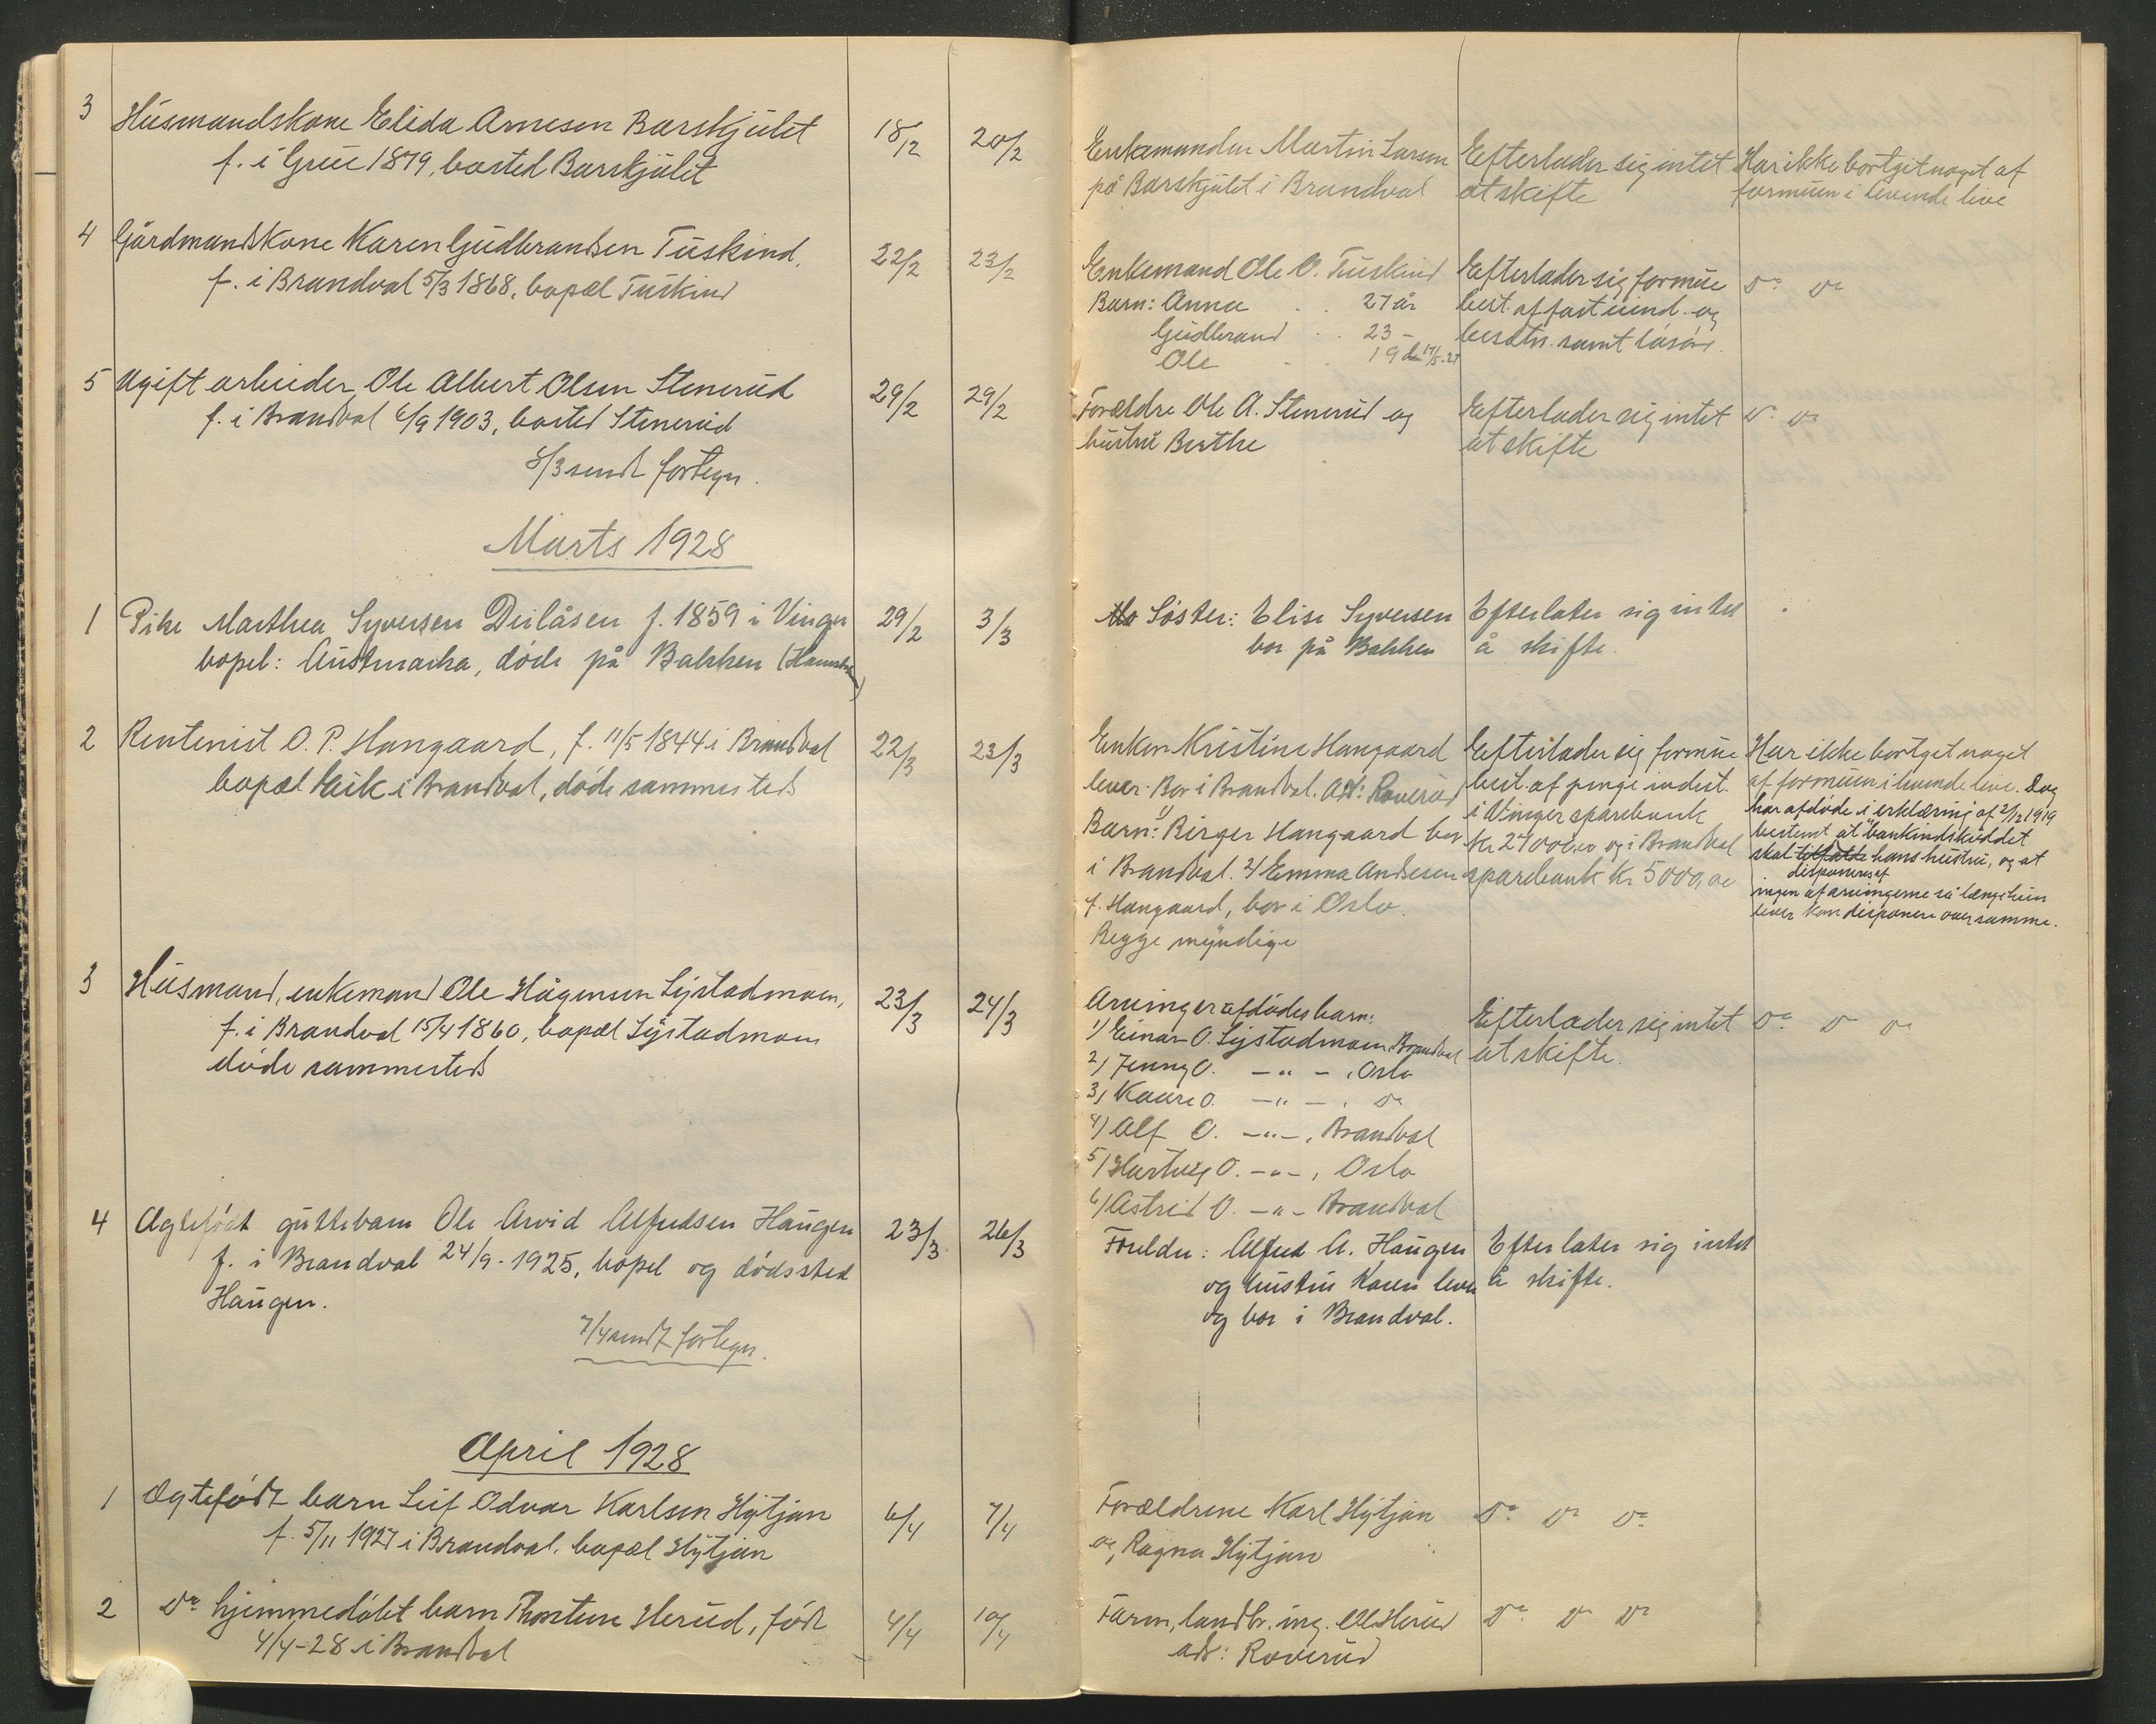 3 Husmandskone Elida Arnesen Barskjület 18/2 20/2 Enkemanden Martin Larsen Efterlader sig intet Har ikke bortgit noget af
f. i Grue 1879, bosted Barskjület på Barskjület i Brandval at skifte formuen i levende live
4 Gårdmandskone Karen Gudbrandsen Tuskind, 22/2 23/2 Enkemand Ole O. Tuskind Efterlader sig formue Do Do
f. i Brandval 5/3 1868, bopæl Tuskind Barn: Anna 27 år best. af fast eiend. og
Gudbrand 23 - besætn. samt løsøre.
Ole 19 den 17/5-27
5 Ugift arbeider Ole Albert Olsen Stenerud 29/2 29/2 Forældre Ole A. Stenerud og Efterlader sig intet Do Do
f. i Brandval 6/9 1903, bosted Stenerud hustru Berthe at skifte
8/3 sendt fortegn.
Marts 1928
1 Pike Marthea Syversen Deilåsen f. 1859 i Vinger 29/2 3/3 Søster: Elise Syversen Efterlater sig intet
bopel: Austmarka, døde på Bakken bor på Bakken å skifte.
2 Rentenist O. P. Hangaard, f. 11/5 1844 i Brandval 22/3 23/3 Enken Kristine Hangaard Efterlader sig formue Har ikke bortget noget
bopæl i Brandval, døde sammesteds lever. Bor i Brandval. Adr: Roverud best. af penge indest. af formuen i levende live. Dog
har afdøde i erklæring af 2/12 1919
Barn: 1) Birger Hangaard bor i Vinger sparebank bestemt at bankindskuddet
i Brandval. 2) Emma Andersen kr 27000,00 og i Brandval skal tilfalde hans hustru, og at
f. Hangaard, bor i Oslo. sparebank kr 5000,00 disponeres af
ingen af arvingerne så længe hun
Begge myndige lever kan disponere over samme.
3 Husmand, enkemand Ole Hågensen Lystadmoen, 23/3 24/3 Arvinger afdødes barn: Efterlader sig intet Do Do Do
f. i Brandval 15/4 1860, bopæl Lystadmoen 1) Einar O. Lystadmoen Brandval at skifte.
døde sammesteds 2) Jenny O. - " - , Oslo
3) Kaare O. - " - , Do
4) Alf O. - " - , Brandval
5) Hartvig O. - " - , Oslo
6) Astrid O. - " - Brandval
4 Ægtefødt guttebarn Ole Arvid Alfredsen Haugen 23/3 26/3 Foreldre: Alfred A. Haugen Efterlater sig intet
f. i Brandval 24/9-1925, bopel og dødssted og hustru Karen lever å skifte.
Haugen. og bor i Brandval.
7/4 sendt fortegn.
April 1928
1 Ægtefødt barn Leif Odvar Karlsen Hytjan 6/4 7/4 Forældrene Karl Hytjan Do Do Do
f. 5/11 1927 i Brandval. bopæl Hytjan og Ragna Hytjan
2 Do hjemmedøbt barn Thorstein Herud, født 4/4 10/4 Faren, landbr. ing. Ole Herud Do Do Do
4/4-28 i Brandval adr: Roverud